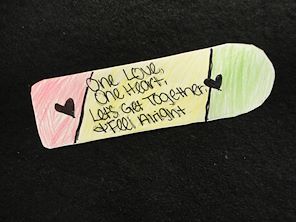 One Love,
One Heart,
Let's Get Together,
& Feel Alright